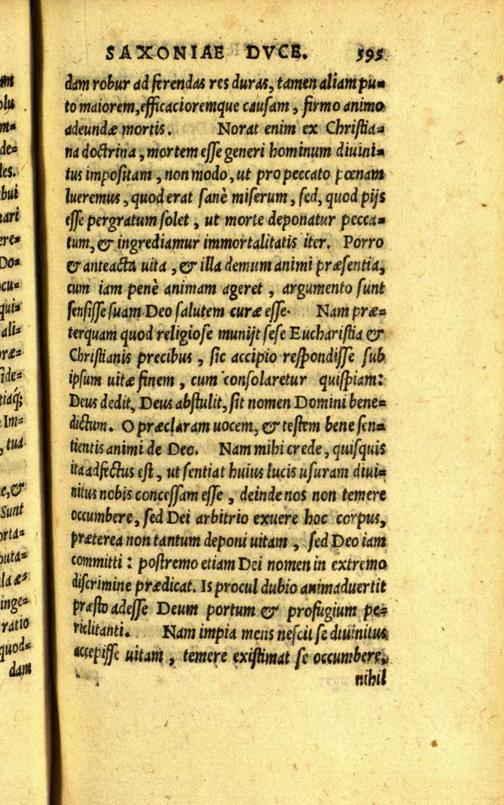 SAXONIAE DVCE. 595
dam robur ad ferendas res duras, tamen aliam pu-
to maiorem, efficacioremque causam, firmo animo
adeundæ mortis. Norat enim ex Christia-
na doctrina, mortem esse generi hominum diuini-
tus impositam, non modo, ut pro peccato pœnam
lueremus, quod erat sanè miserum, sed, quod pijs
esse pergratum solet, ut morte deponatur pecca-
tum, & ingrediamur immortalitatis iter. Porro
& anteacta uita, & illa demum animi præsentia,
cum iam penè animam ageret, argumento sunt
sensisse suam Deo salutem curæ esse. Nam præ-
terquam quod religiose munijt sese Eucharistia &
Christianis precibus, sic accipio respondisse sub
ipsum uitæ finem, cum consolaretur quispiam:
Deus dedit, Deus abstulit, sit nomen Domini bene-
dictum. O præclaram uocem, & testem bene sen-
tientis animi de Deo. Nam mihi crede, quisquis
ita adfectus est, ut sentiat huius lucis usuram diui-
nitus nobis concessam esse, deinde nos non temere
occumbere, sed Dei arbitrio exuere hoc corpus,
præterea non tantum deponi uitam, sed Deo iam
committi: postremo etiam Dei nomen in extremo
discrimine prædicat. Is procul dubio animaduertit
præsto adesse Deum portum & profugium pe-
riclitanti. Nam impia mens nescit se diuinitus
accepisse uitam, temere existimat se occumbere,
nihil